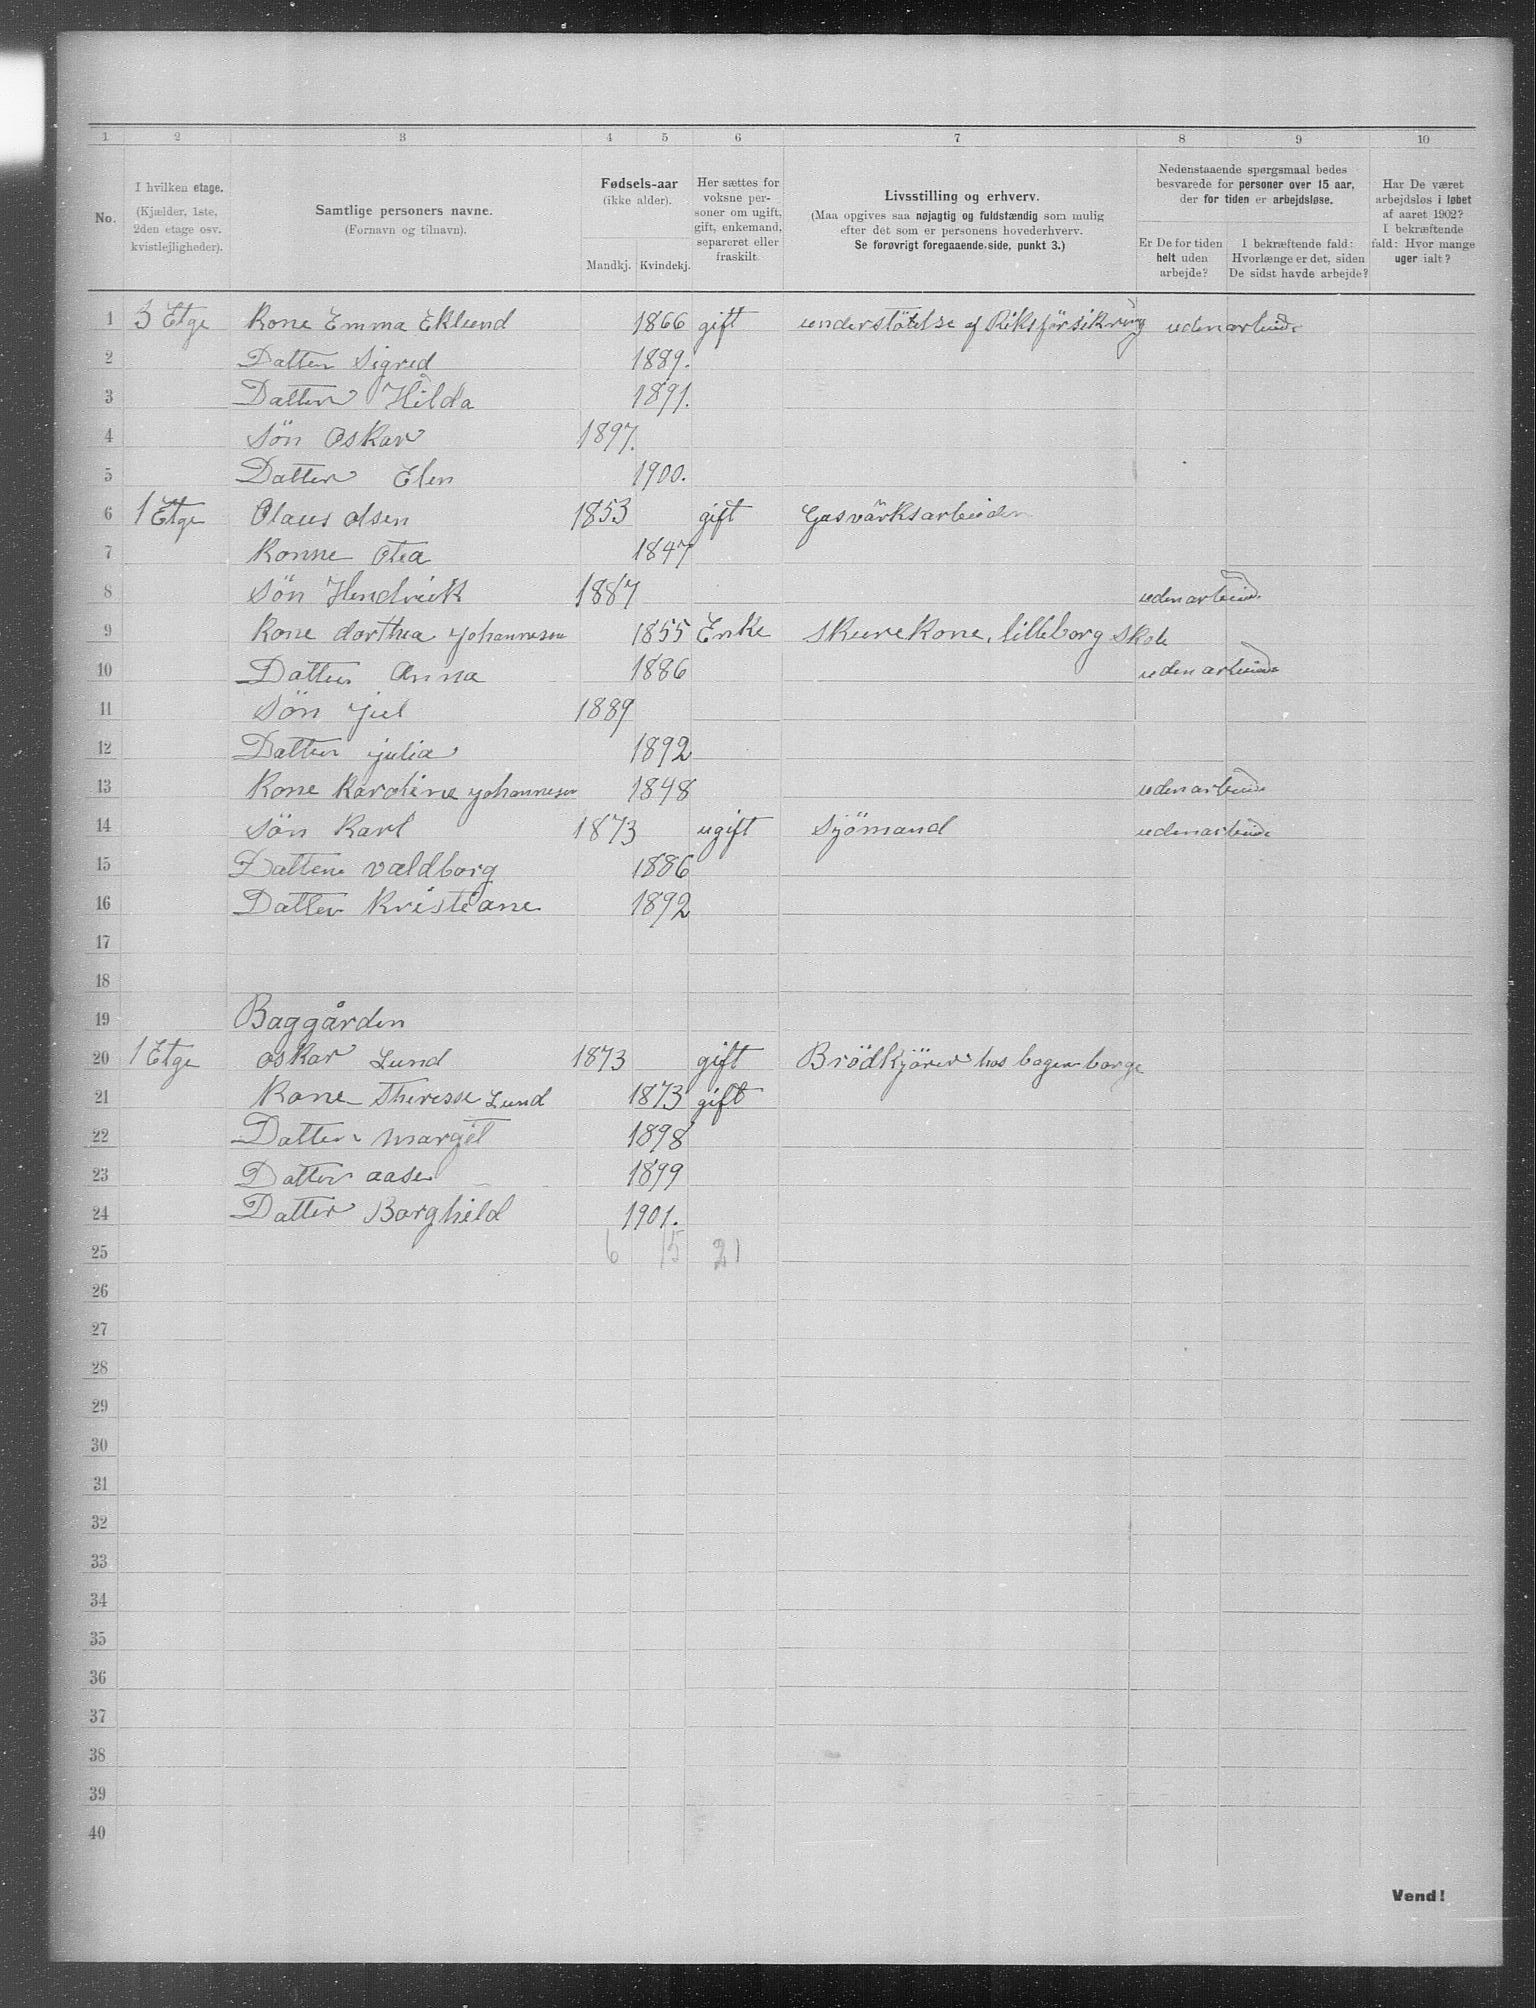 1 2 3 4 5 6 7 8 9 10
No.
I hvilken etage.
(Kjælder, 1ste,
2den etage osv.
kvistlejligheder).
Samtlige personers navne.
(Fornavn og tilnavn).
Fødsels-aar
(ikke alder).
Mandkj. Kvindekj.
Her sættes for
voksne per-
soner om ugift,
gift, enkemand,
separeret eller
fraskilt.
Livsstilling og erhverv.
(Maa opgives saa nøjagtig og fuldstændig som mulig
efter det som er personens hovederhverv.
Se forøvrigt foregaaende side, punkt 3.)
Nedenstaaende spørgsmaal bedes
besvarede for personer over 15 aar,
der for tiden er arbejdsløse.
Er De for tiden
helt uden
arbejde?
I bekræftende fald:
Hvorlænge er det, siden
De sidst havde arbejde?
Har De været
arbejdsløs i løbet
af aaret 1902?
I bekræftende
fald: Hvor mange
uger ialt?
1 3 Etge Kone Emma Eklund 1866 gift understötelse af Riksförsikring uden arbeide
2 Datter Sigrid 1889.
3 Datter Hilda 1891.
4 Sön Oskar 1897.
5 Datter Elen 1900.
6 1 Etge Olaus Olsen 1853 gift Gasvärksarbeider
7 Konne Otea 1847
8 Sön Hendrick 1887 uden arbeide
9 Kone dorthea Johannesen 1855 Enke Skurekone, lilleborg Skole
10 Datter Anna 1886 uden arbeide
11 Sön 1889
12 Datter julia 1892
13 Kone Karoline Johannesen 1848 uden arbeide
14 Sön Karl 1873 ugift Sjömand uden arbeide
15 Datter valdborg 1886
16 Datter Kristiane 1892
17
18
19 Baggården
20 1 Etge Oskar Lund 1873 gift Brödkjörer hos bager borge
21 Kone Theresse Lund 1873 gift
22 Datter margit 1898
23 Datter aase 1899
24 Datter Borghild 1901.
25 6 15 21
26
27
28
29
30
31
32
33
34
35
36
37
38
39
40
Vend!